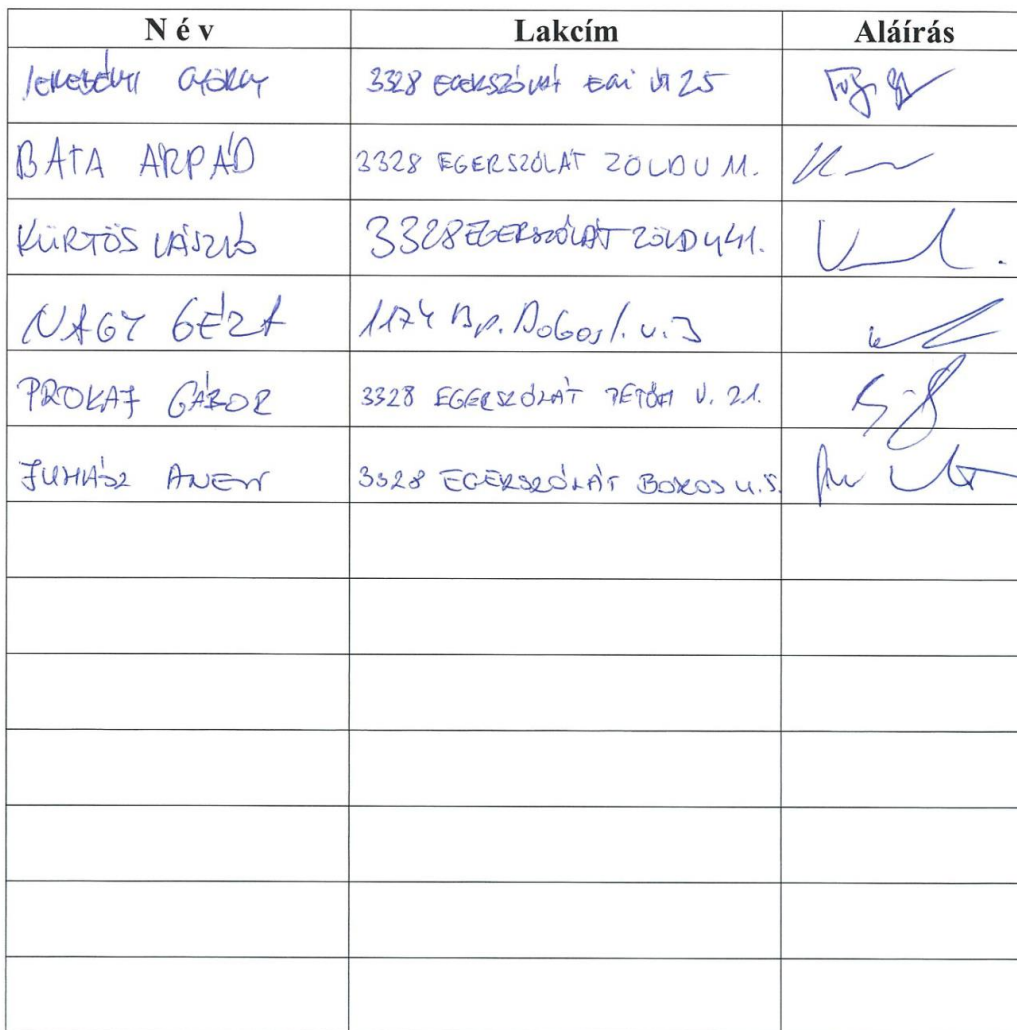 Név Lakcím Aláírás
GYÖRGY 3328 EGERSZÓLÁT EGRI ÚT 25
BATA ÁRPÁD 3328 EGERSZÓLÁT ZÖLD U 11.
KÜRTÖS LÁSZLÓ 3328 EGERSZÓLÁT ZÖLD U 41.
NAGY GÉZA 1174 Bp. u. 3
PROKAJ GÁBOR 3328 EGERSZÓLÁT PETŐFI U. 21.
JUHÁSZ 3328 EGERSZÓLÁT BOKOS U. 5.